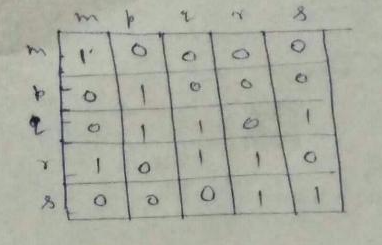 m p q r s
m 1 0 0 0 0
p 0 1 0 0 0
q 0 1 1 0 1
r 1 0 1 1 0
s 0 0 0 1 1